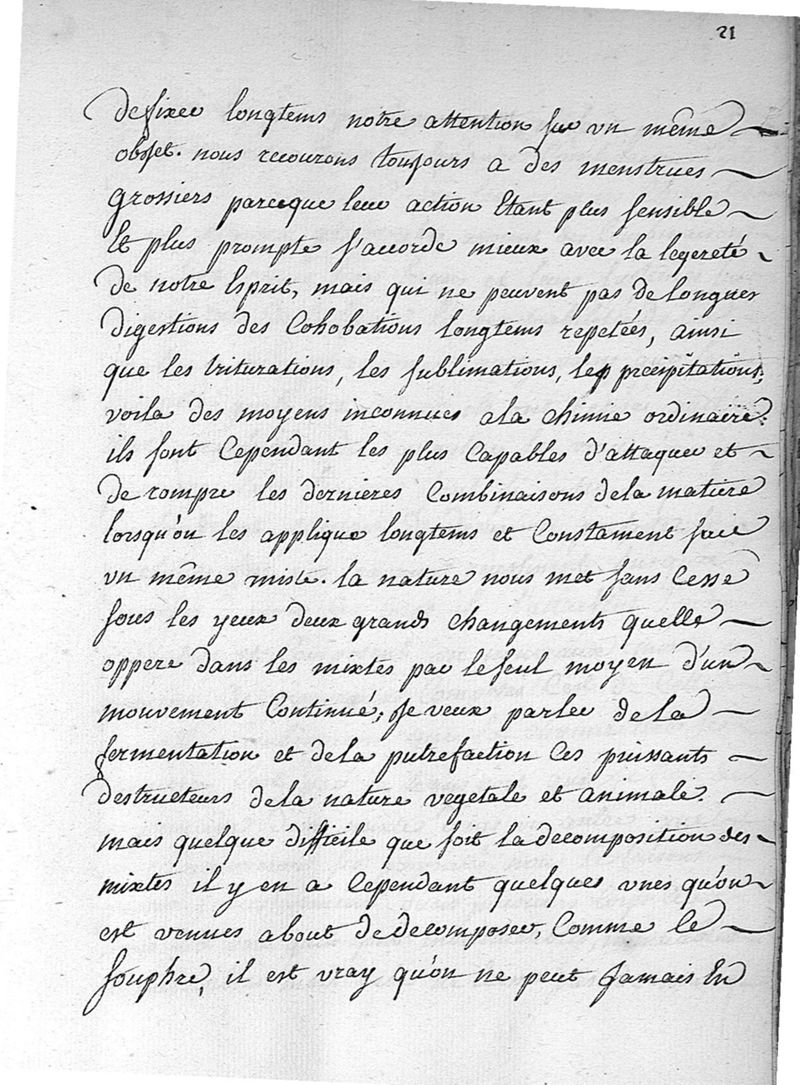 21
de fixer longtems notre attention sur vn même
objet. nous recourons toujours a des menstrues
grossiers parceque leur action Etant plus sensible
Et plus prompte s'accorde mieux avec la legereté
de notre Esprit, mais qui ne peuvent pas de longues
digestions des Cohobations longtems repetées, ainsi
que les triturations, les sublimations, les preipitations,
voila des moyens inconnues ala chimie ordinaire.
ils sont Cependant les plus Capables d'attaquer et
de rompre les dernieres Combinaisons dela matiere
lorsqu'on les applique longtems et Constament sur
vn même mixte. la nature nous met sans Cesse
sous les yeux deux grands changements quelle
oppere dans les mixtes par le seul moyen d'un
mouvement Continué; Je veux parler de la
fermentation et dela putrefaction Ces puissants
destructeurs dela nature vegetale et animale.
mais quelque difficile que soit la decomposition des
mixtes il y en a Cependant quelques vnes qu'on
est venues about de decomposer, Comme le
souphre, il est vray qu'on ne peut Jamais En